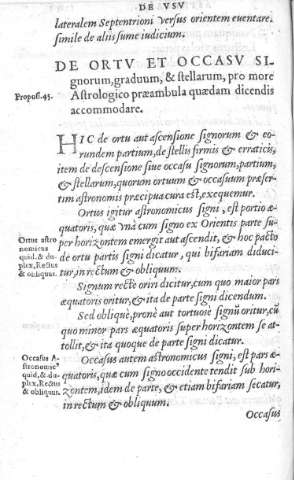 DE VSV
lateralem Septentrioni versus orientem euentare.
simile de aliis sume iudicium.
DE ORTV ET OCCASV SI-
gnorum, graduum, & stellarum, pro more
Propos. 45.
Astrologico præambula quædam dicendis
accommodare.
HIC de ortu aut ascensione signorum & eo-
rundem partium, de stellis firmis & erraticis,
item de descensione siue occasu signorum, partium,
& stellarum, quorum ortuum & occasuum præser-
tim astronomis præcipua cura est, exequemur.
Ortus igitur astronomicus signi, est portio æ-
quatoris, quæ vnà cum signo ex Orientis parte su-
Ortus astro
nomicus
quid, & du-
plex, Rectus
& obliquus.
per horizontem emergit aut ascendit, & hoc pacto
de ortu partis signi dicatur, qui bifariam diduci-
tur, in rectum & obliquum.
Signum rectè oriri dicitur, cum quo maior pars
æquatoris oritur, & ita de parte signi dicendum.
Sed obliquè, pronè aut tortuose signũ oritur, cũ
quo minor pars æquatoris super horizontem se at-
tollit, & ita quoque de parte signi dicatur.
Occasus A-
stronomicꝰ
quid, & du-
plex, Rectꝰ
& obliquus.
Occasus autem astronomicus signi, est pars æ-
quatoris, quæ cum signo occidente tendit sub hori-
zontem, idem de parte, & etiam bifariam secatur,
in rectum & obliquum.
Occasus